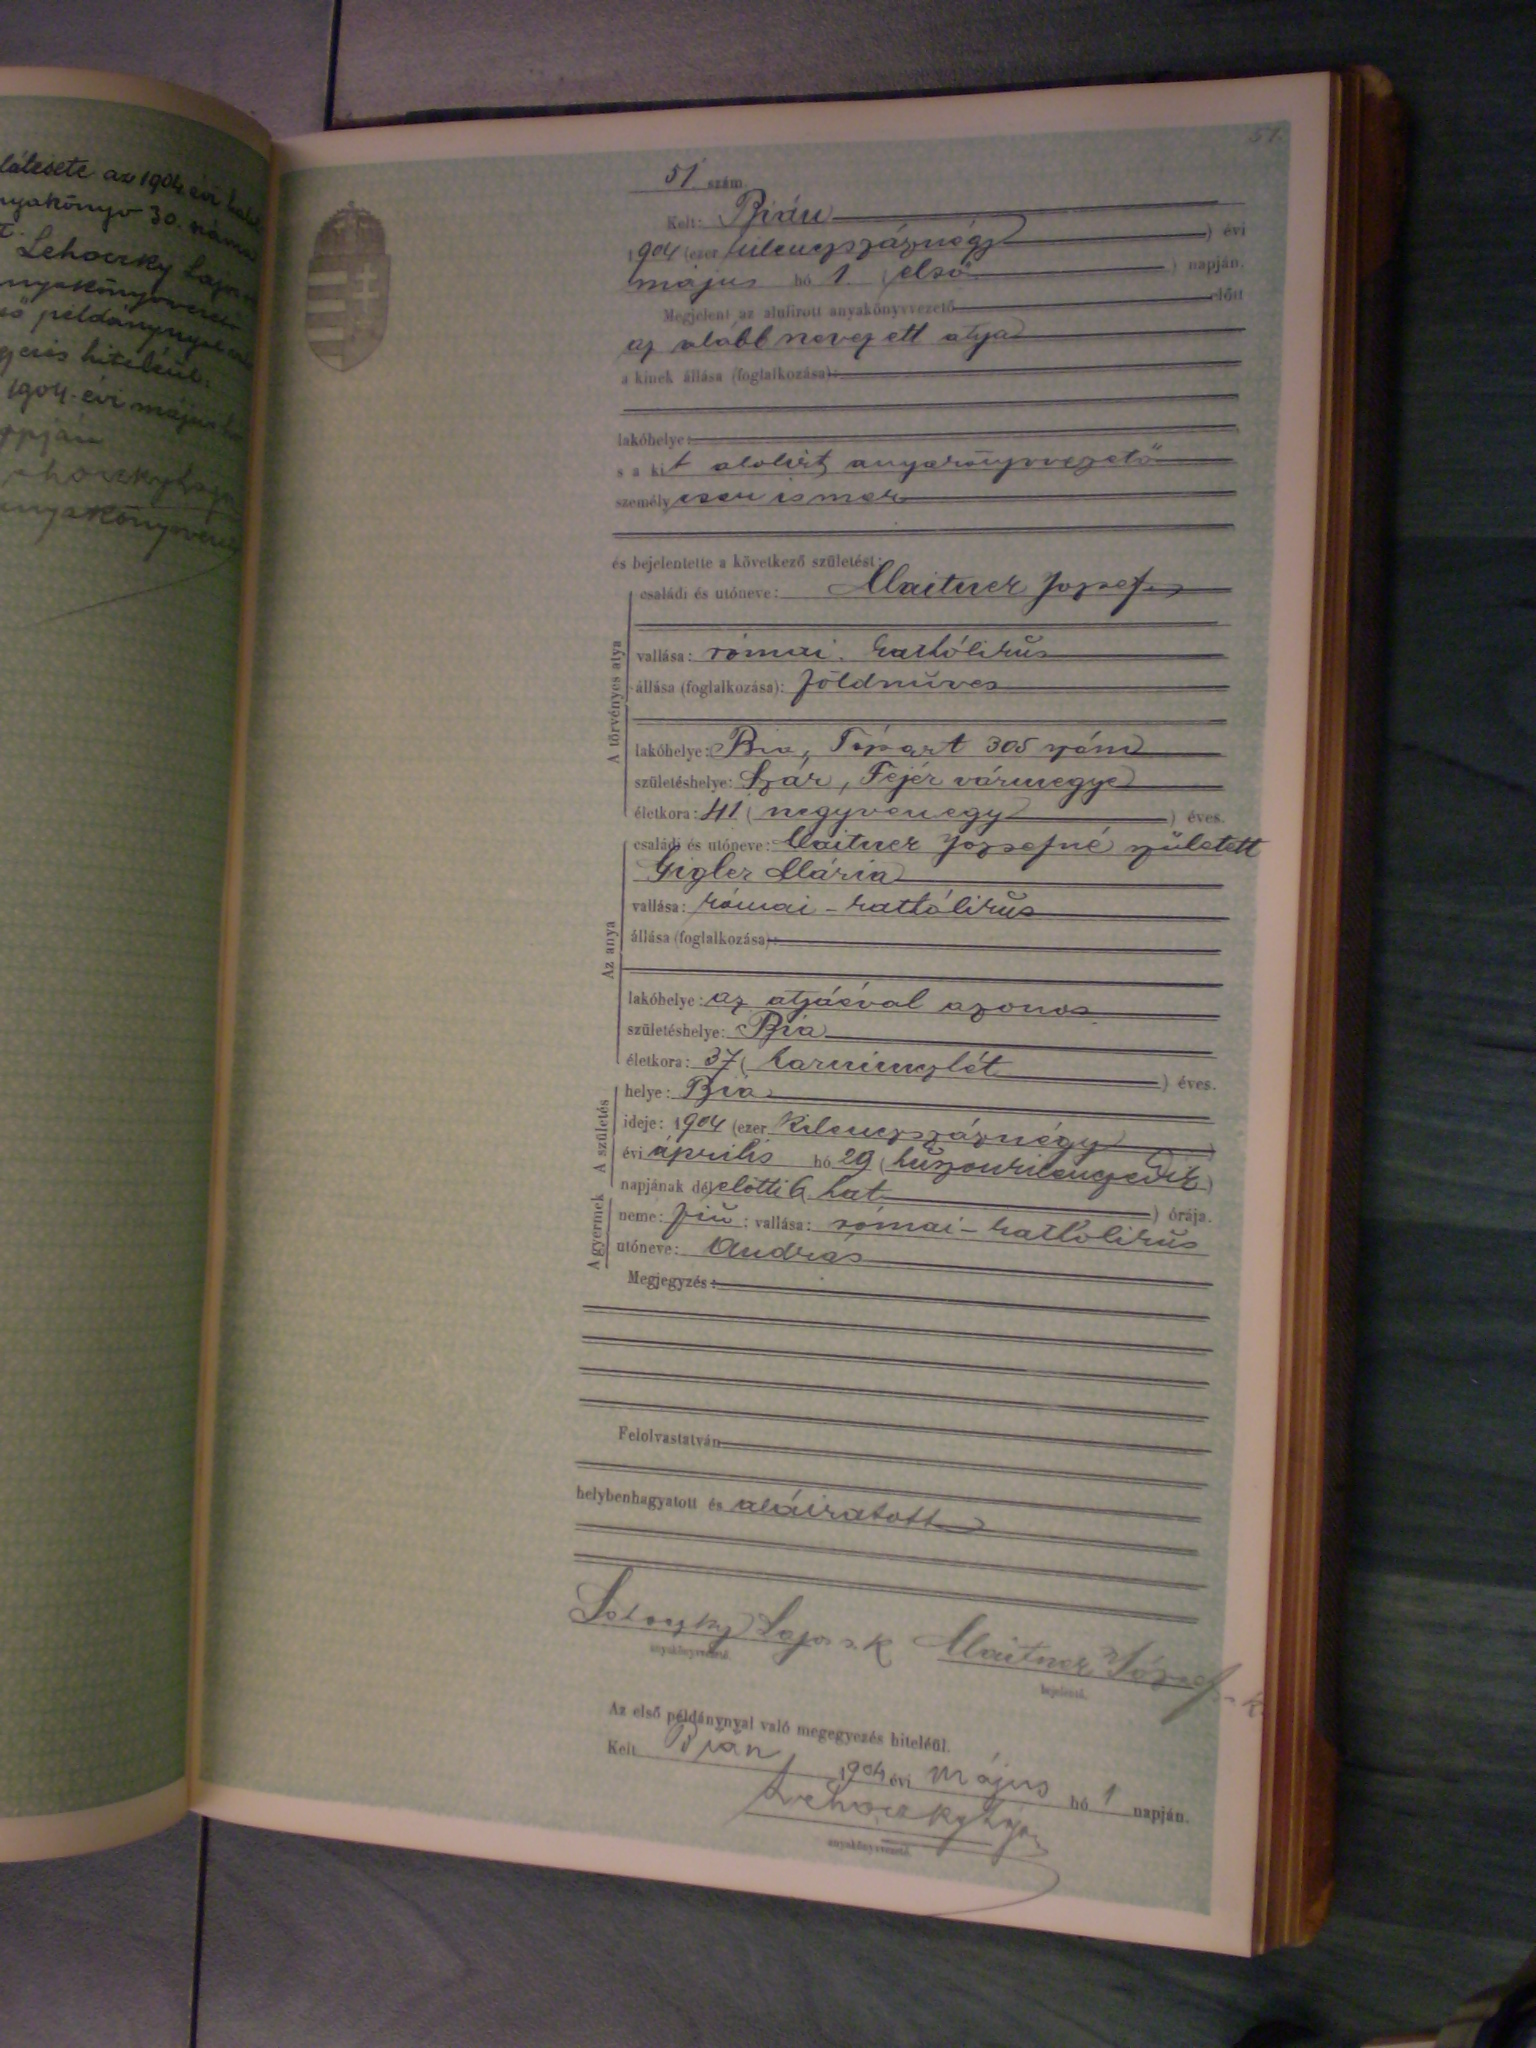 az 1904 évi
nyakönyv 30. száma
Lehoczky Lajos
nyakönyvvezető
ső példánynyal
gyezés hiteléül:
1904. évi május hó
napján
Lehoczky Lajos
anyakönyvvezető
51.
51 szám.
Kelt: Bián
1904 (ezer kilenczszáznégy) évi
május hó 1. (első) napján.
Megjelent az alulirott anyakönyvvezető előtt
az alább nevezett atya
a kinek állása (foglalkozása):
lakóhelye:
s a kit alolirt anyakönyvvezető
személyesen ismer
és bejelentette a következő születést:
A törvényes atya
családi és utóneve: Maitner Jozsef
vallása: római katholikus
állása (foglalkozása): földmüves
lakóhelye: Bia, Tópart 305 szám
születéshelye: Szár, Fejér vármegye
életkora: 41 (negyvenegy) éves.
Az anya
családi és utóneve: Maitner Jozsefné született
Gigler Mária
vallása: római - katholikus
állása (foglalkozása):
lakóhelye: az atyáéval azonos
születéshelye: Bia
életkora: 37 (harminczhét) éves.
A születés
helye: Bia
ideje: 1904 (ezer kilenczszáznégy)
évi április hó 29 (huszonkilenczedik)
napjának délelőtti 6 hat) órája.
A gyermek
neme: fiu; vallása: római - katholikus
utóneve: András
Megjegyzés:
Felolvastatván
helybenhagyatott és aláiratott
Lehoczky Lajos s. k Maitner József s. k.
anyakönyvvezető. bejelentő.
Az első példánynyal való megegyezés hiteléül.
Kelt Bián 1904 évi május hó 1 napján.
Lehoczky Lajos
anyakönyvvezető.